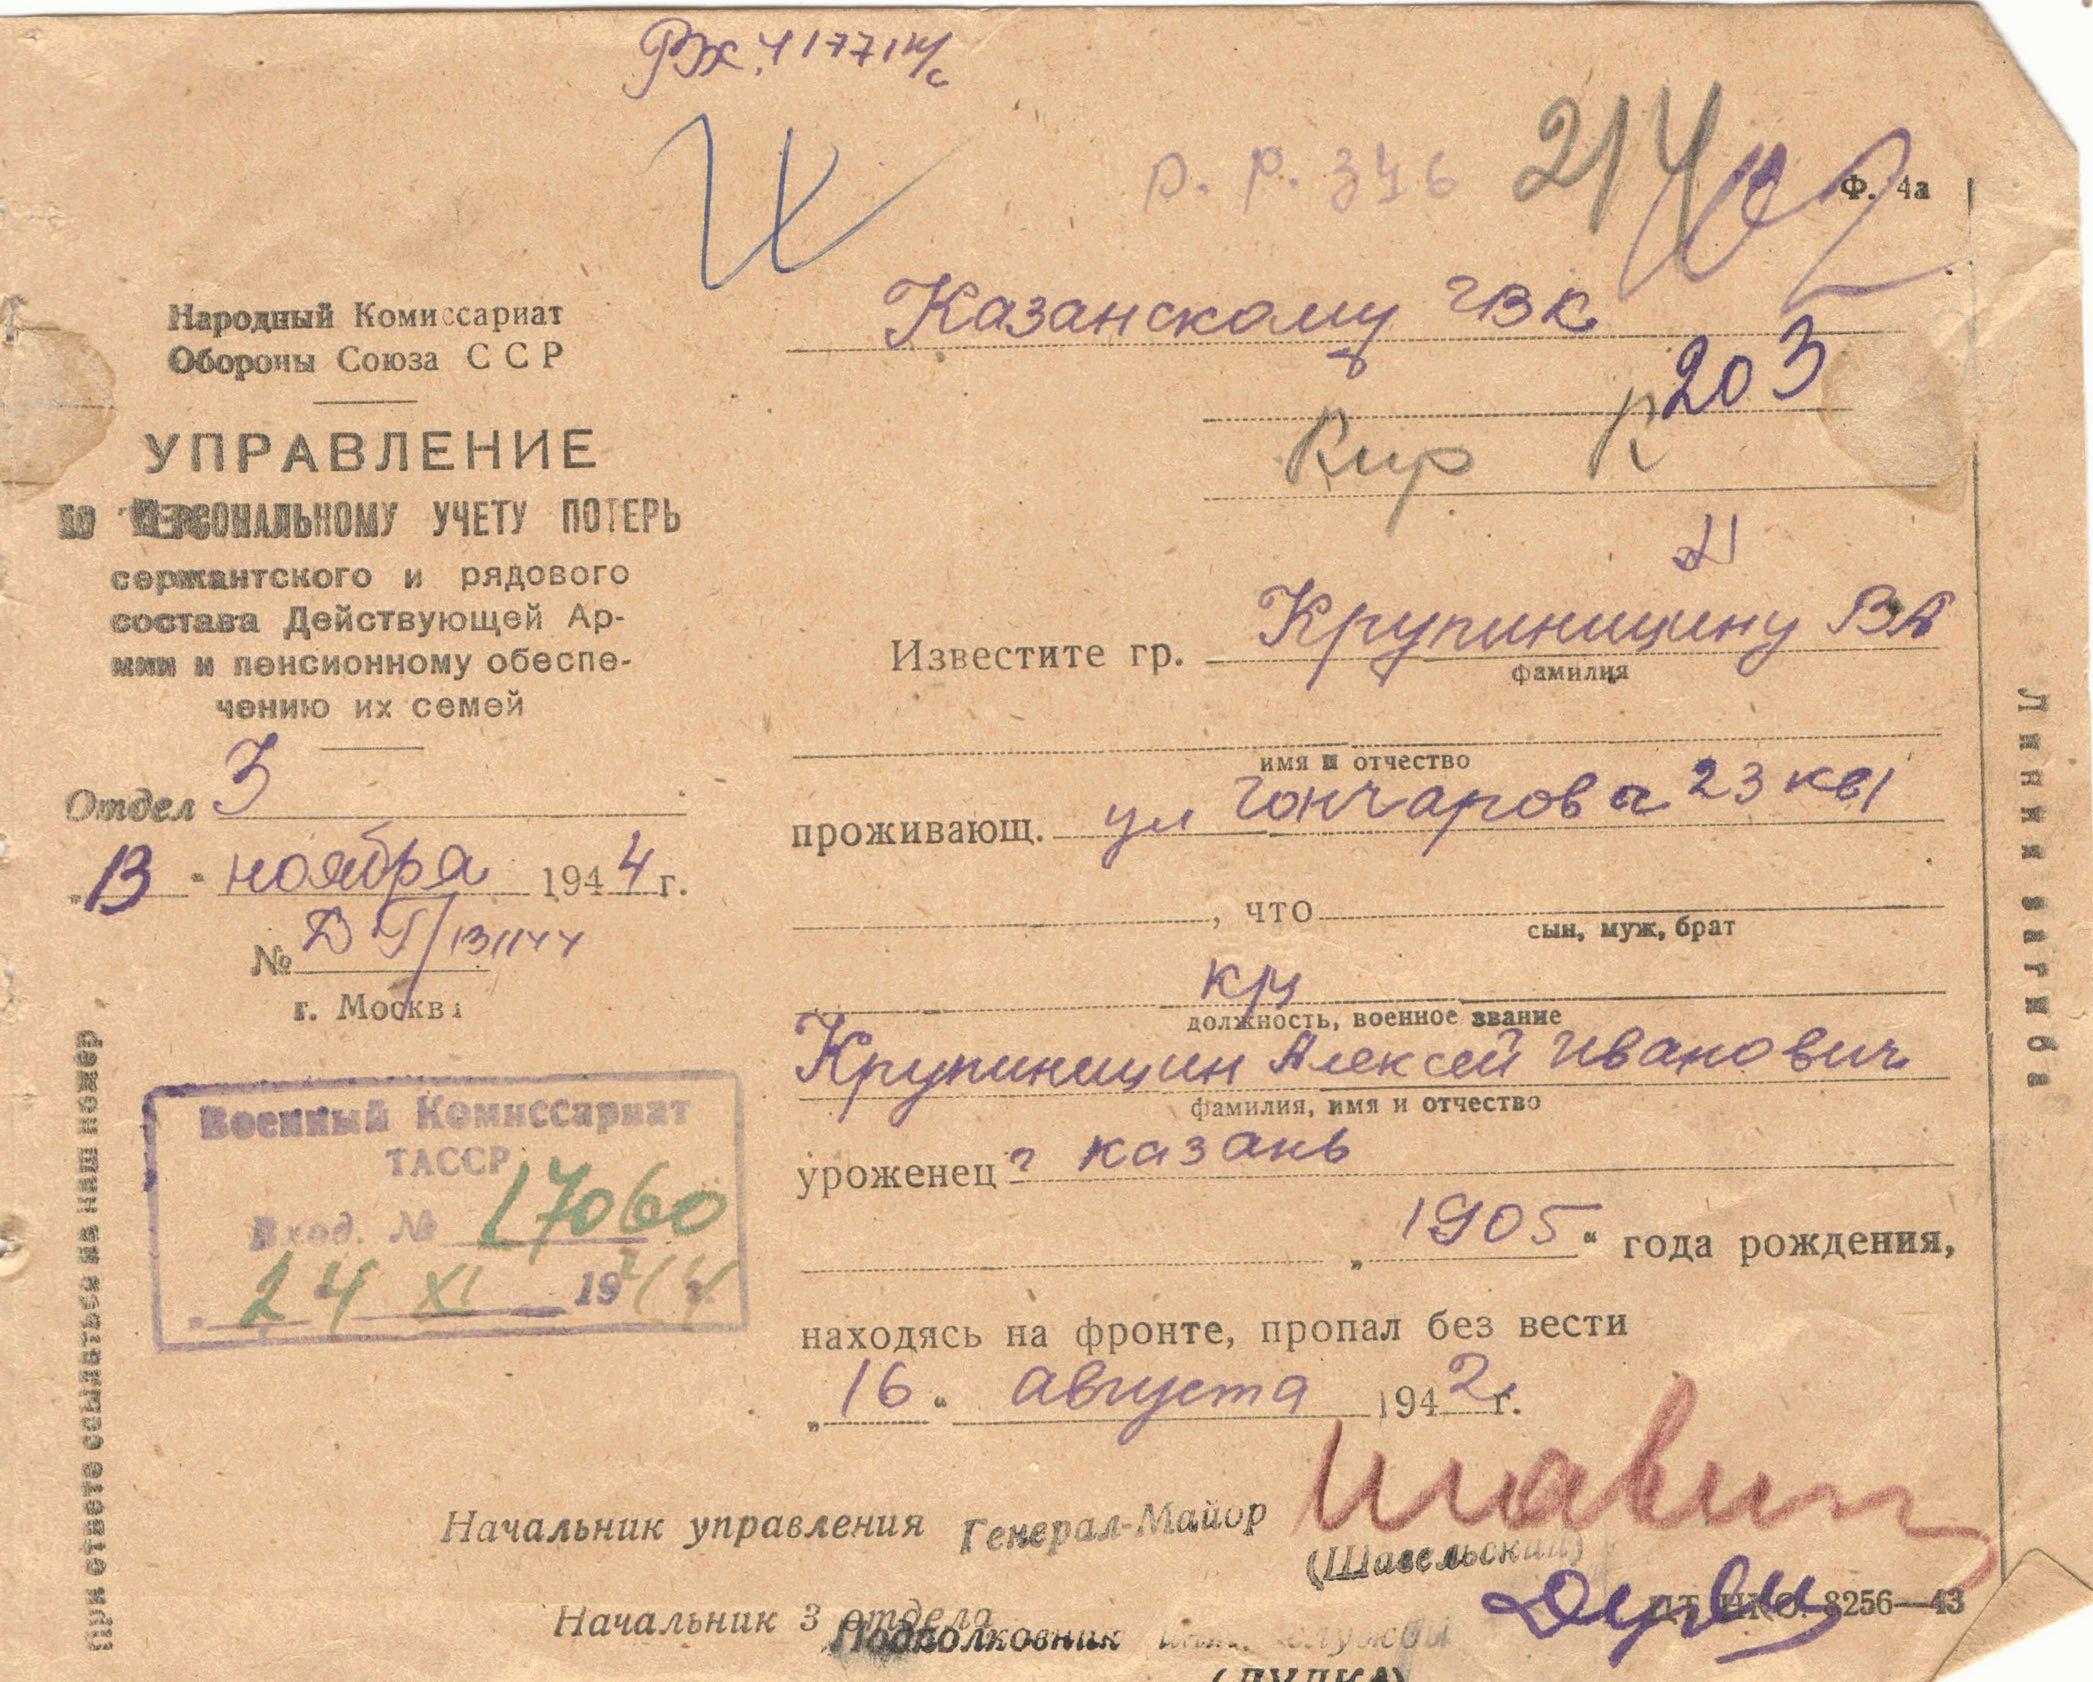 214
р. р. 346
Ф. 4а
Народный Комиссариат
Обороны Союза ССР
УПРАВЛЕНИЕ
ПО ПЕРСОНАЛЬНОМУ УЧЕТУ ПОТЕРЬ
сержантского и рядового
состава Действующей Ар-
мии и пенсионному обеспе-
чению их семей
Отдел 3
"13" ноября 1944 г.
№
г. Москва
При ответе ссылаться на наш номер
Военный Комиссариат
ТАССР
Вход. № 17060
24 XI 1944
Казанскому ГВК
203
Кир
Известите гр. Крупиницину ВА
фамилия
имя и отчество
проживающ. ул Гончарова 23 кв1
, что
сын, муж, брат
кр-ц
должность, военное звание
Крупиницин Алексей Иванович
фамилия, имя и отчество
уроженец г Казань
"1905" года рождения,
находясь на фронте, пропал без вести
"16" августа 1942 г.
Начальник управления Генерал-Майор
(Шавельский)
Начальник 3 отдела
Подполковник инт. службы
(ДУДКА)
ЦТ НКО. 8256—43
Линия загиба